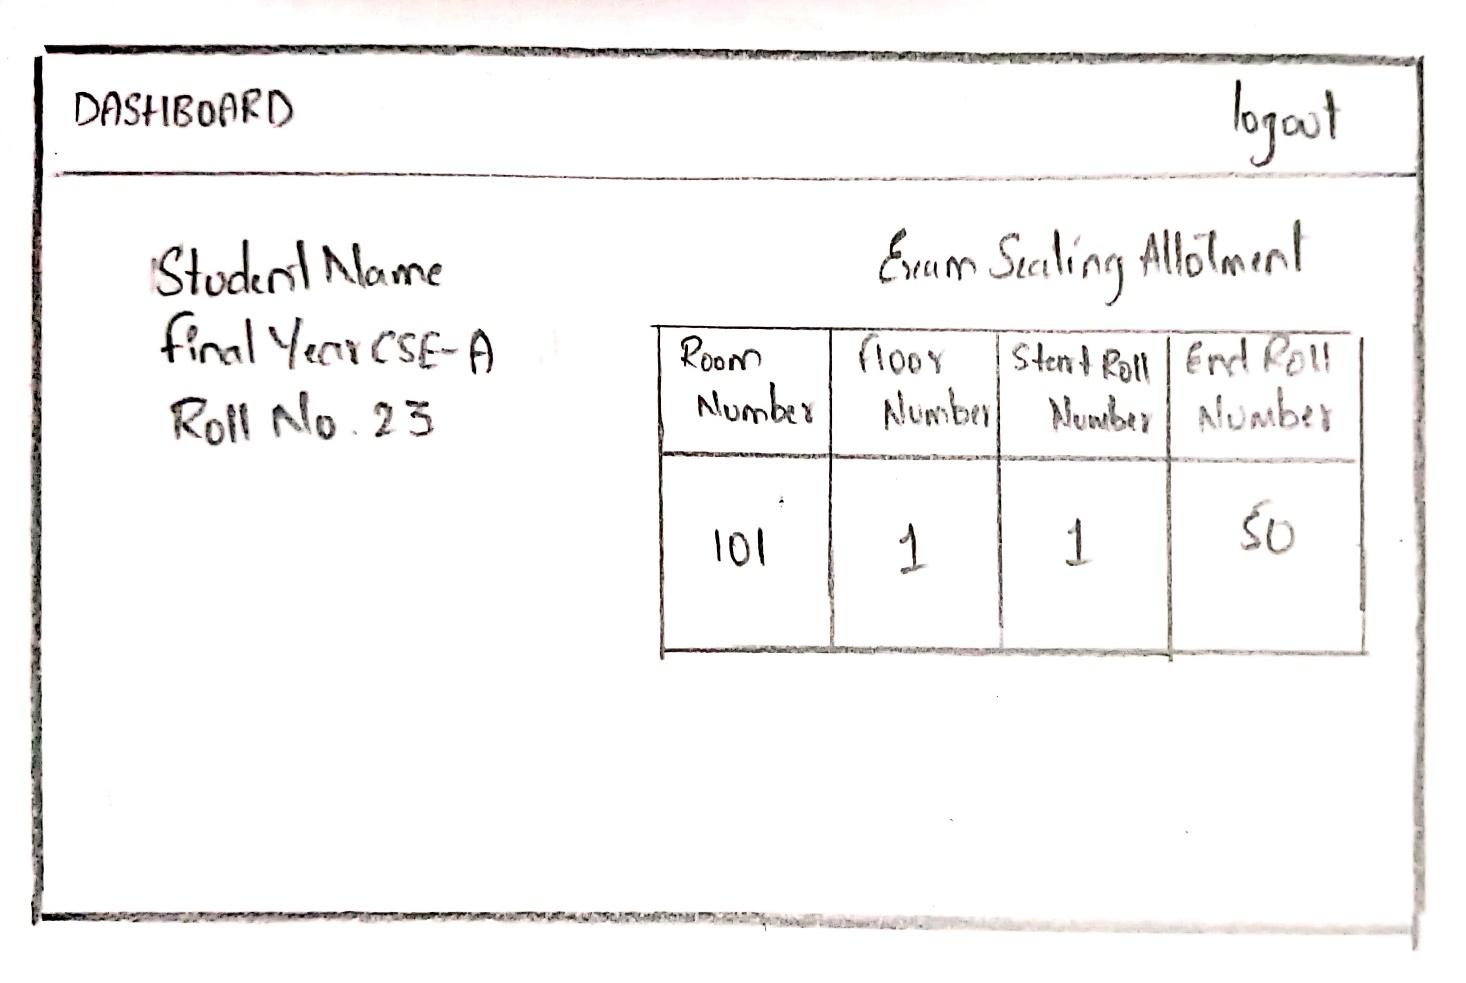 DASHBOARD
logout
Student Name
Final Year CSE-A
Roll No. 23
Exam Seating Allotment
Room Number
Floor Number
Start Roll Number
End Roll Number
101
1
1
50